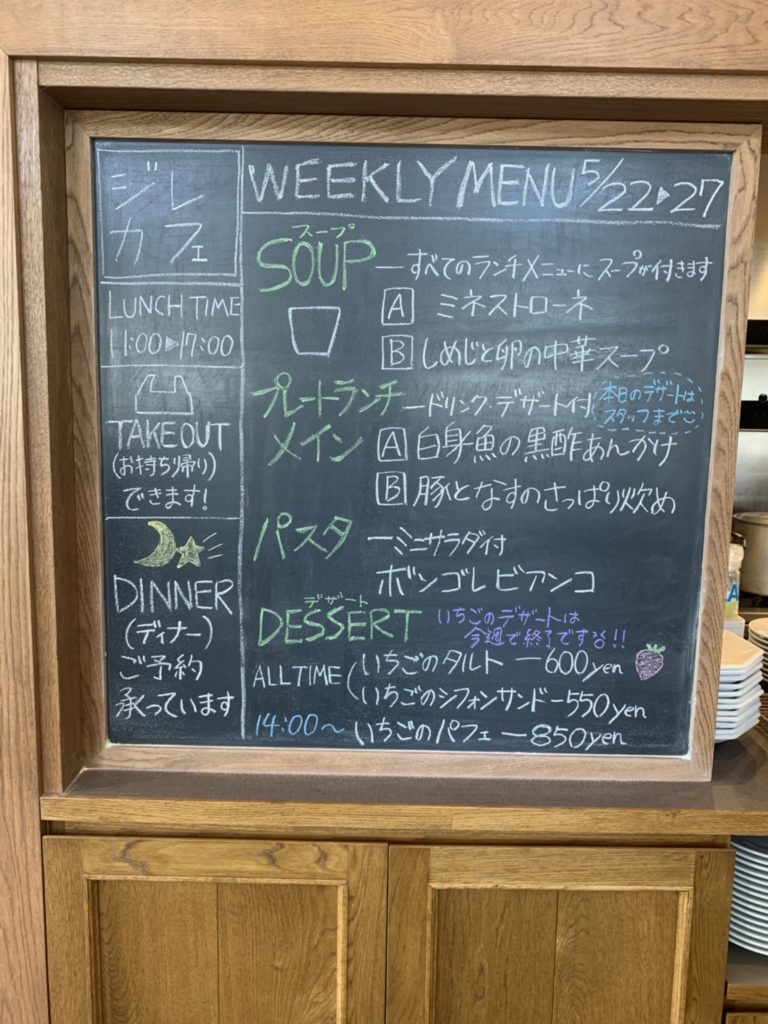 ジレ
カフェ
LUNCH TIME
11:00▶17:00
TAKEOUT
(お持ち帰り)
できます!
DINNER
(ディナー)
ご予約
承っています
WEEKLY MENU 5/22▶27
スープ
SOUP ーすべてのランチメニューにスープが付きます
A ミネストローネ
B しめじと卵の中華スープ
プレートランチ ードリンク・デザート付
本日のデザートは
スタッフまで
メイン A 白身魚の黒酢あんかけ
B 豚となすのさっぱり炒め
パスタ ーミニサラダ付
ボンゴレビアンコ
デザート
DESSERT いちごのデザートは
今週で終了です!!
ALL TIME (いちごのタルト ー600yen
いちごのシフォンサンドー550yen
14:00〜 いちごのパフェ ー850yen